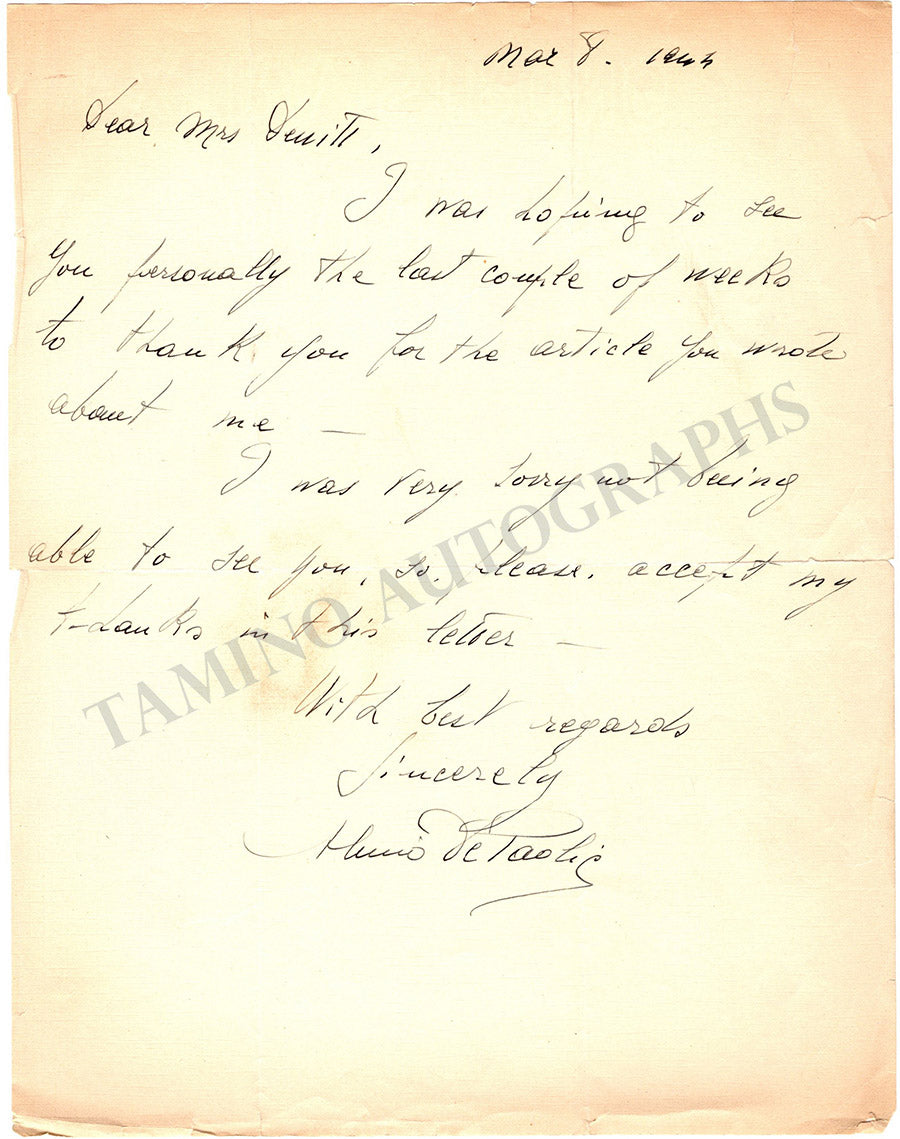 Mar 8. 1944
Dear Mrs Devitt,
I was hoping to see
you personally the last couple of weeks
to thank you for the article you wrote
about me —
I was very sorry not being
able to see you, so, please, accept my
thanks in this letter —
With best regards
Sincerely
Alessio De Paolis
TAMINO AUTOGRAPHS